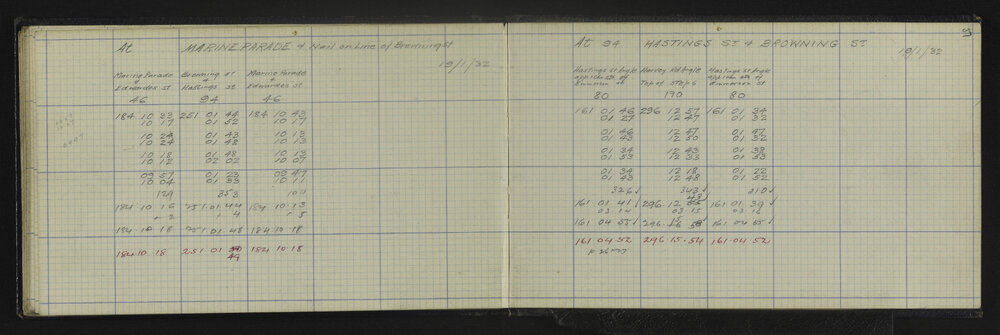 At MARINE PARADE & Nail on Line of Browning St
19/1/32
Marine Parade & Edwardes St
Browning St & Hastings St
Marine Parade & Edwardes St
46 94 46
184 10 23 251 01 44 184 10 43
10 17 01 52 10 17
10 24 01 43 10 13
10 24 01 48 10 13
10 18 01 48 10 13
10 12 02 02 10 07
09 57 01 23 09 47
10 04 01 33 10 11
129 353
184.10.16 251.01.44 184.10.13
+ 2 + 4 + 5
184 10 18 251.01.48 184.10.18
184.10.18 251.01 49 184.10.18
37
At 94 HASTINGS ST & BROWNING ST.
19/1/32
Hastings St Angle opposite Stn of Emerson St
Harvey Rd Angle Top of Steps
Hastings St Angle opposite Stn of Emmerson St
80 190 80
161 01 46 296 12 57 161 01 34
01 27 12 47 01 32
01 46 12 47 01 47
01 43 12 50 01 32
01 34 12 43 01 38
01 53 12 33 01 53
01 34 12 18 01 22
01 43 12 48 01 52
326 343 310
161 01 41 296.12 43 161 01 39
03 14 03 15 03 16
161 04 55 296 15 58 161 04 55
161.04.52 296.15.54 161.04.52